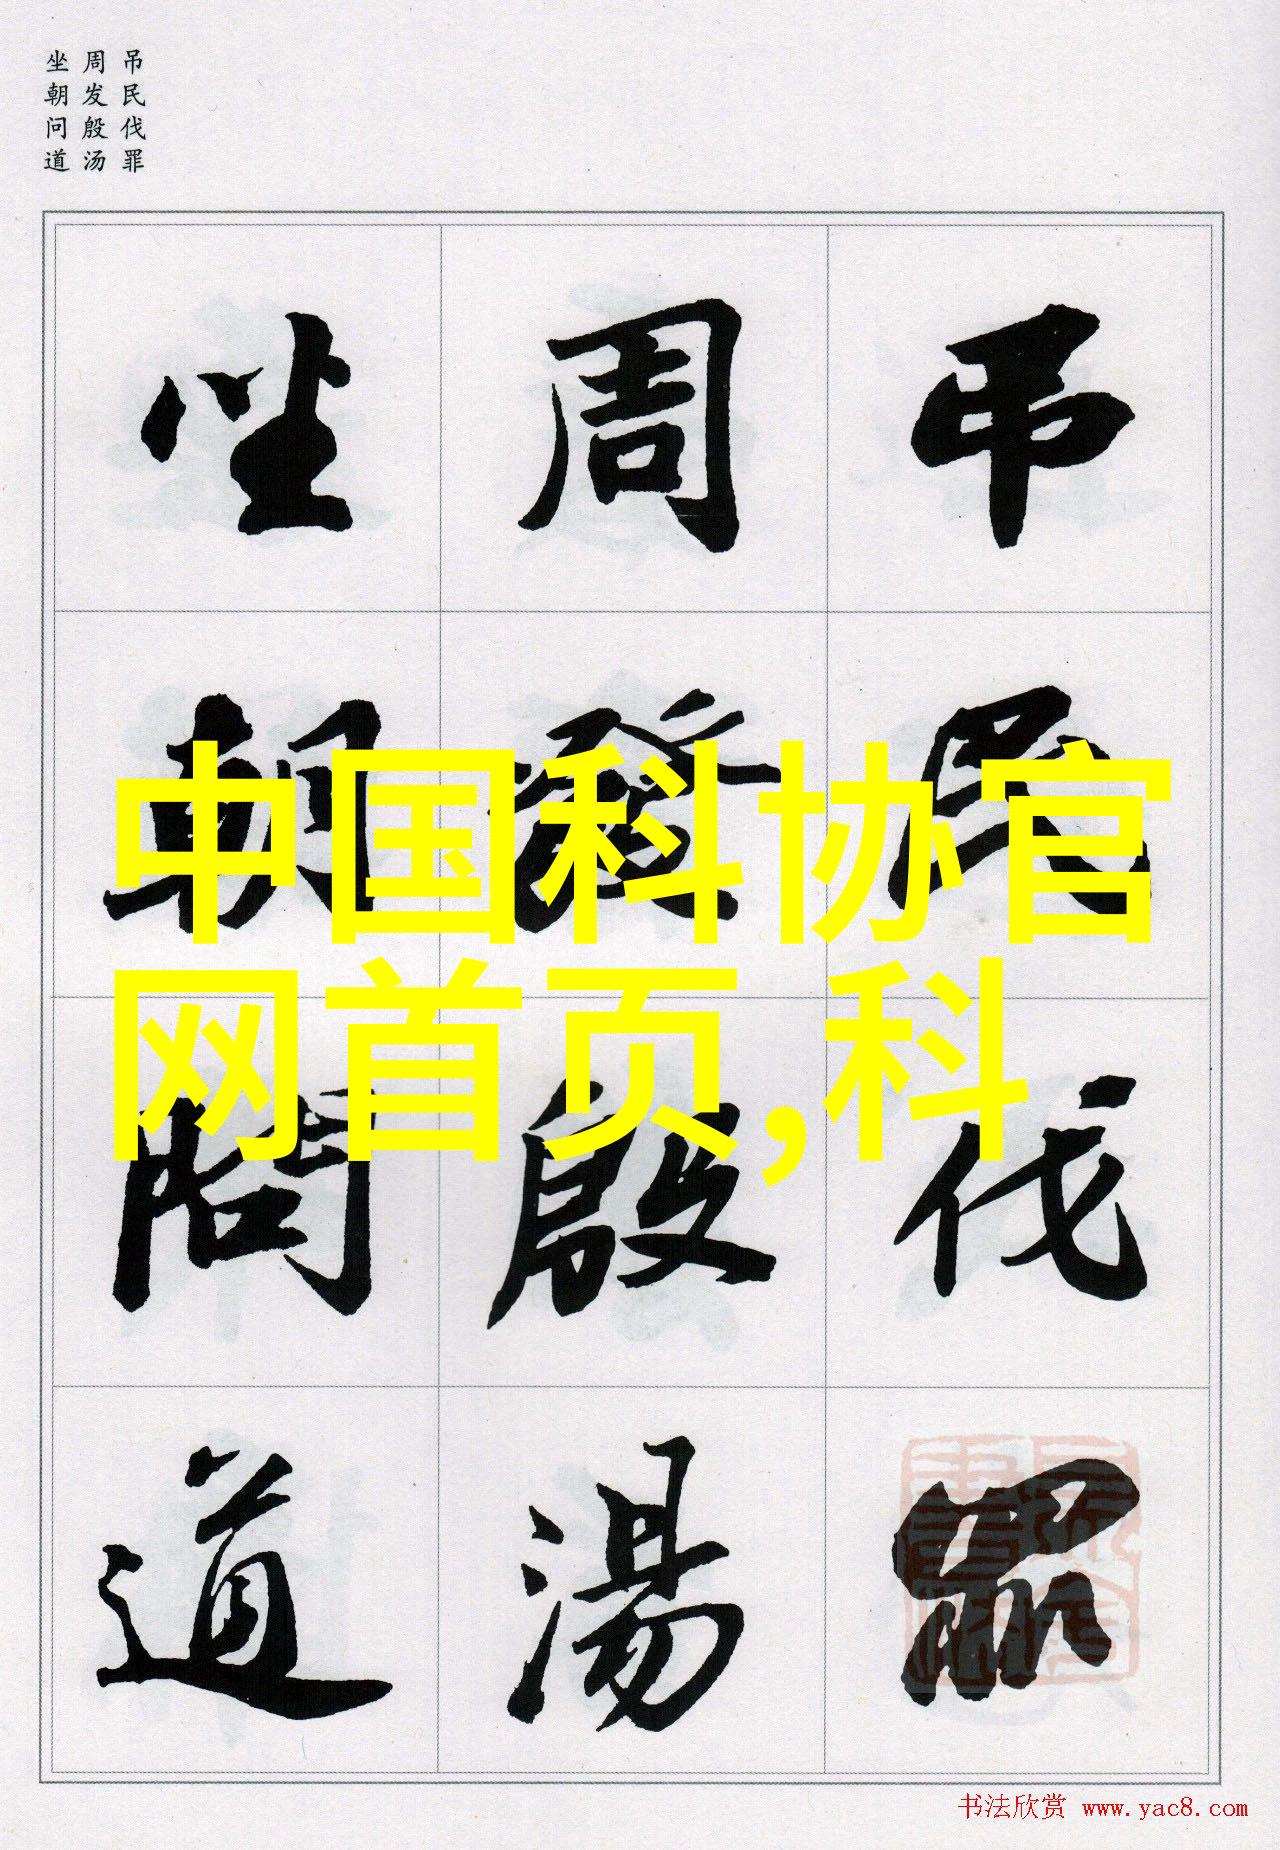 吊民伐罪
周发殷汤
坐朝问道
吊民伐罪
周發殷湯
坐朝問道
中国科协官
网首页,科
书法欣赏 www.yac8.com